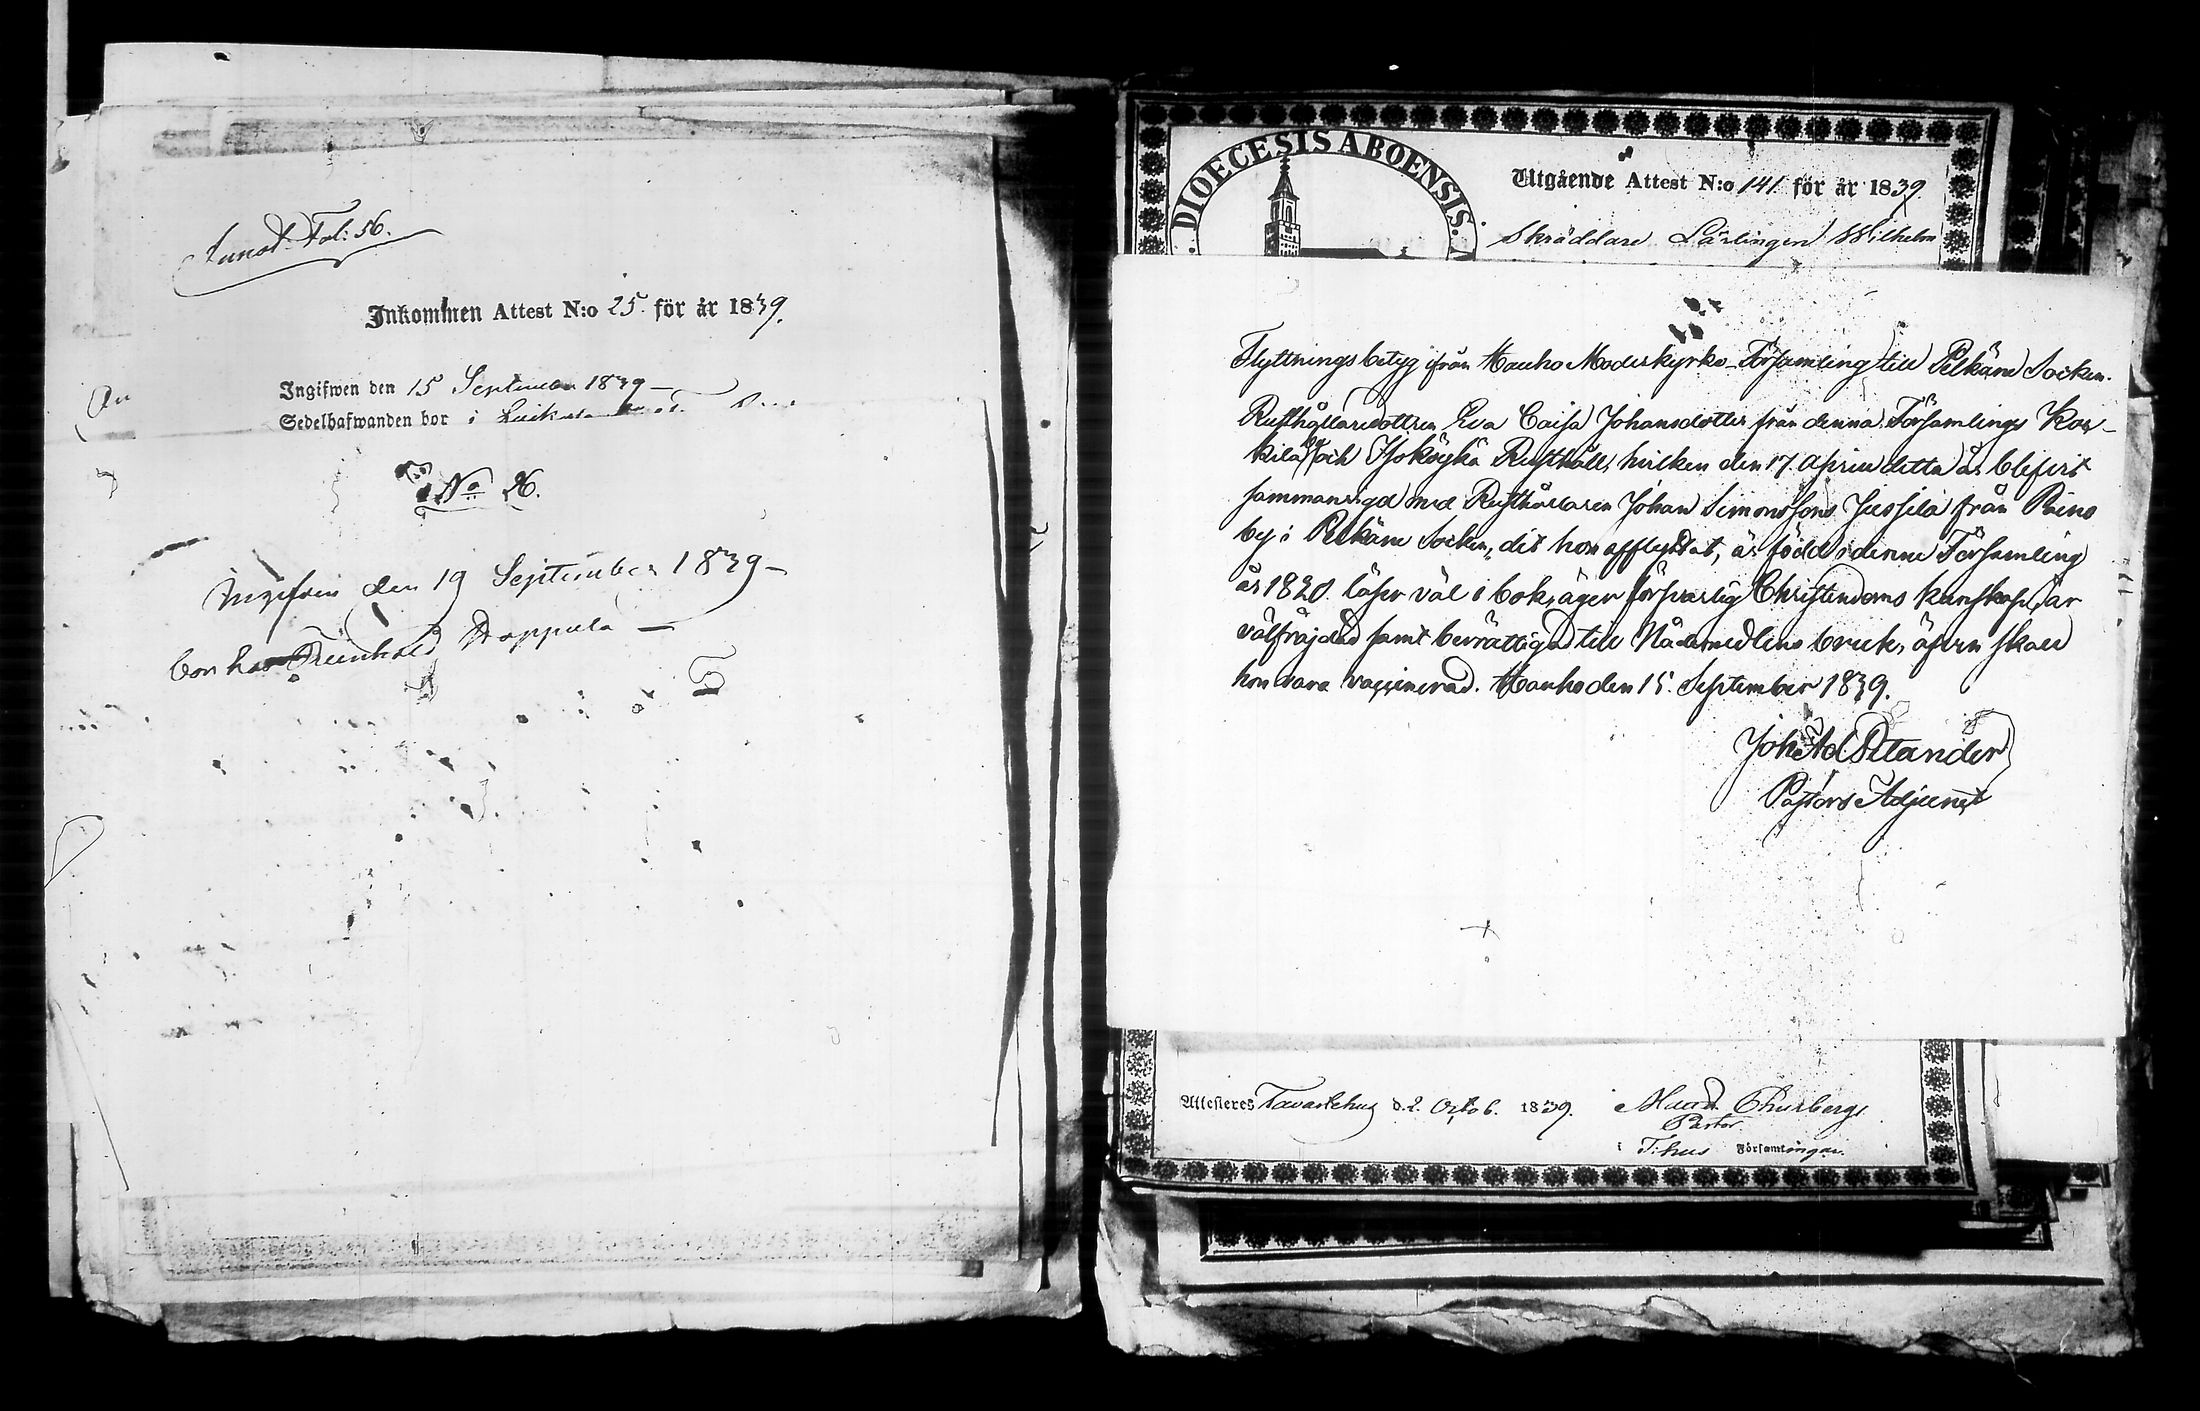 Annot. Fol: 56.
Inkommen Attest N:o 25 för år 1839.
Ingifwen den 15 September 1839 —
Sedelhafwanden bor i
No 26.
Ingifven den 19 September 1839 —
bor hos Reinhold Hoppula —
DIOECESIS ABOENSIS.
Utgående Attest N:o 141 för år 1839.
Skräddare Lärlingen Wilhelm
Flyttningsbetyg ifrån Hauho Moderkyrko-Församling till Pelkäne Socken.
Rusthållaredottren Eva Caisa Johansdotter från denna Församlings Kor-
kila by och Isoköykä Rusthåll, hvilken den 17. Aprill detta år blifvit
sammanvigd med Rusthållaren Johan Simonssons Jussila från Raino
by i Pelkäne Socken, dit hon afflyttat, är född i denne Församling
år 1820. läser väl i bok, äger försvarlig Christendoms kunskap, är
välfräjdad samt berättigad till Nådemedlens bruk, äfven skall
hon vara vaccinerad. Hauho den 15. September 1839.
Joh: Ad. Relander
Pastors Adjunct
Attesteres Tavastehus d. 2. Octob. 1839. Thurberg
Pastor
i T:hus Församlingar.